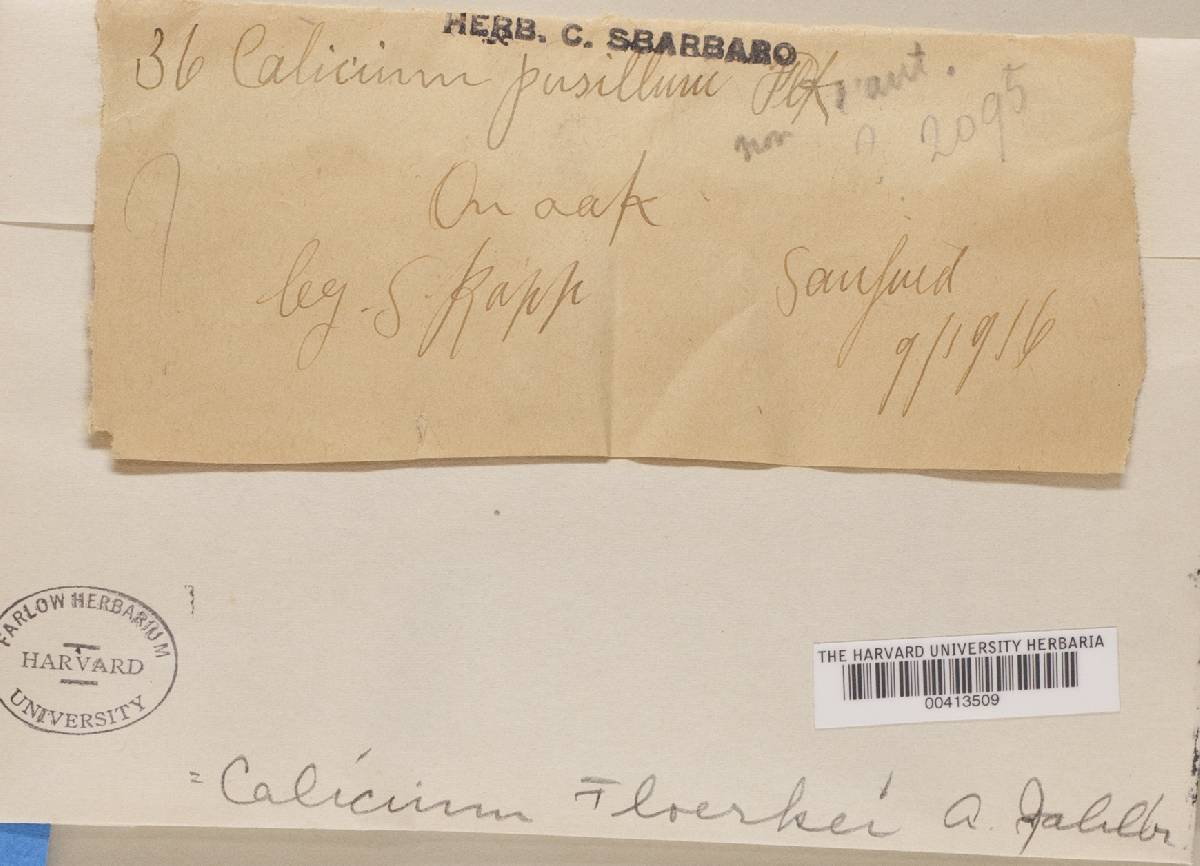 HERB. C. SBARBARO
36 Calicium pusillum Flk
non aut.
A 2095
On oak
leg. S. Rapp
Sanford
9/1916
FARLOW HERBARIUM
HARVARD
UNIVERSITY
THE HARVARD UNIVERSITY HERBARIA
00413509
= Calicium Floerkei A. Zahlbr